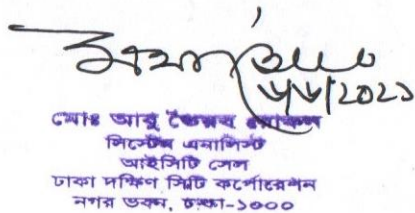 ৮/৮/2021
মোঃ আবু তৈয়ব রোকন
সিস্টেম এনালিস্ট
আইসিটি সেল
ঢাকা দক্ষিণ সিটি কর্পোরেশন
নগর ভবন, ঢাকা-১০০০